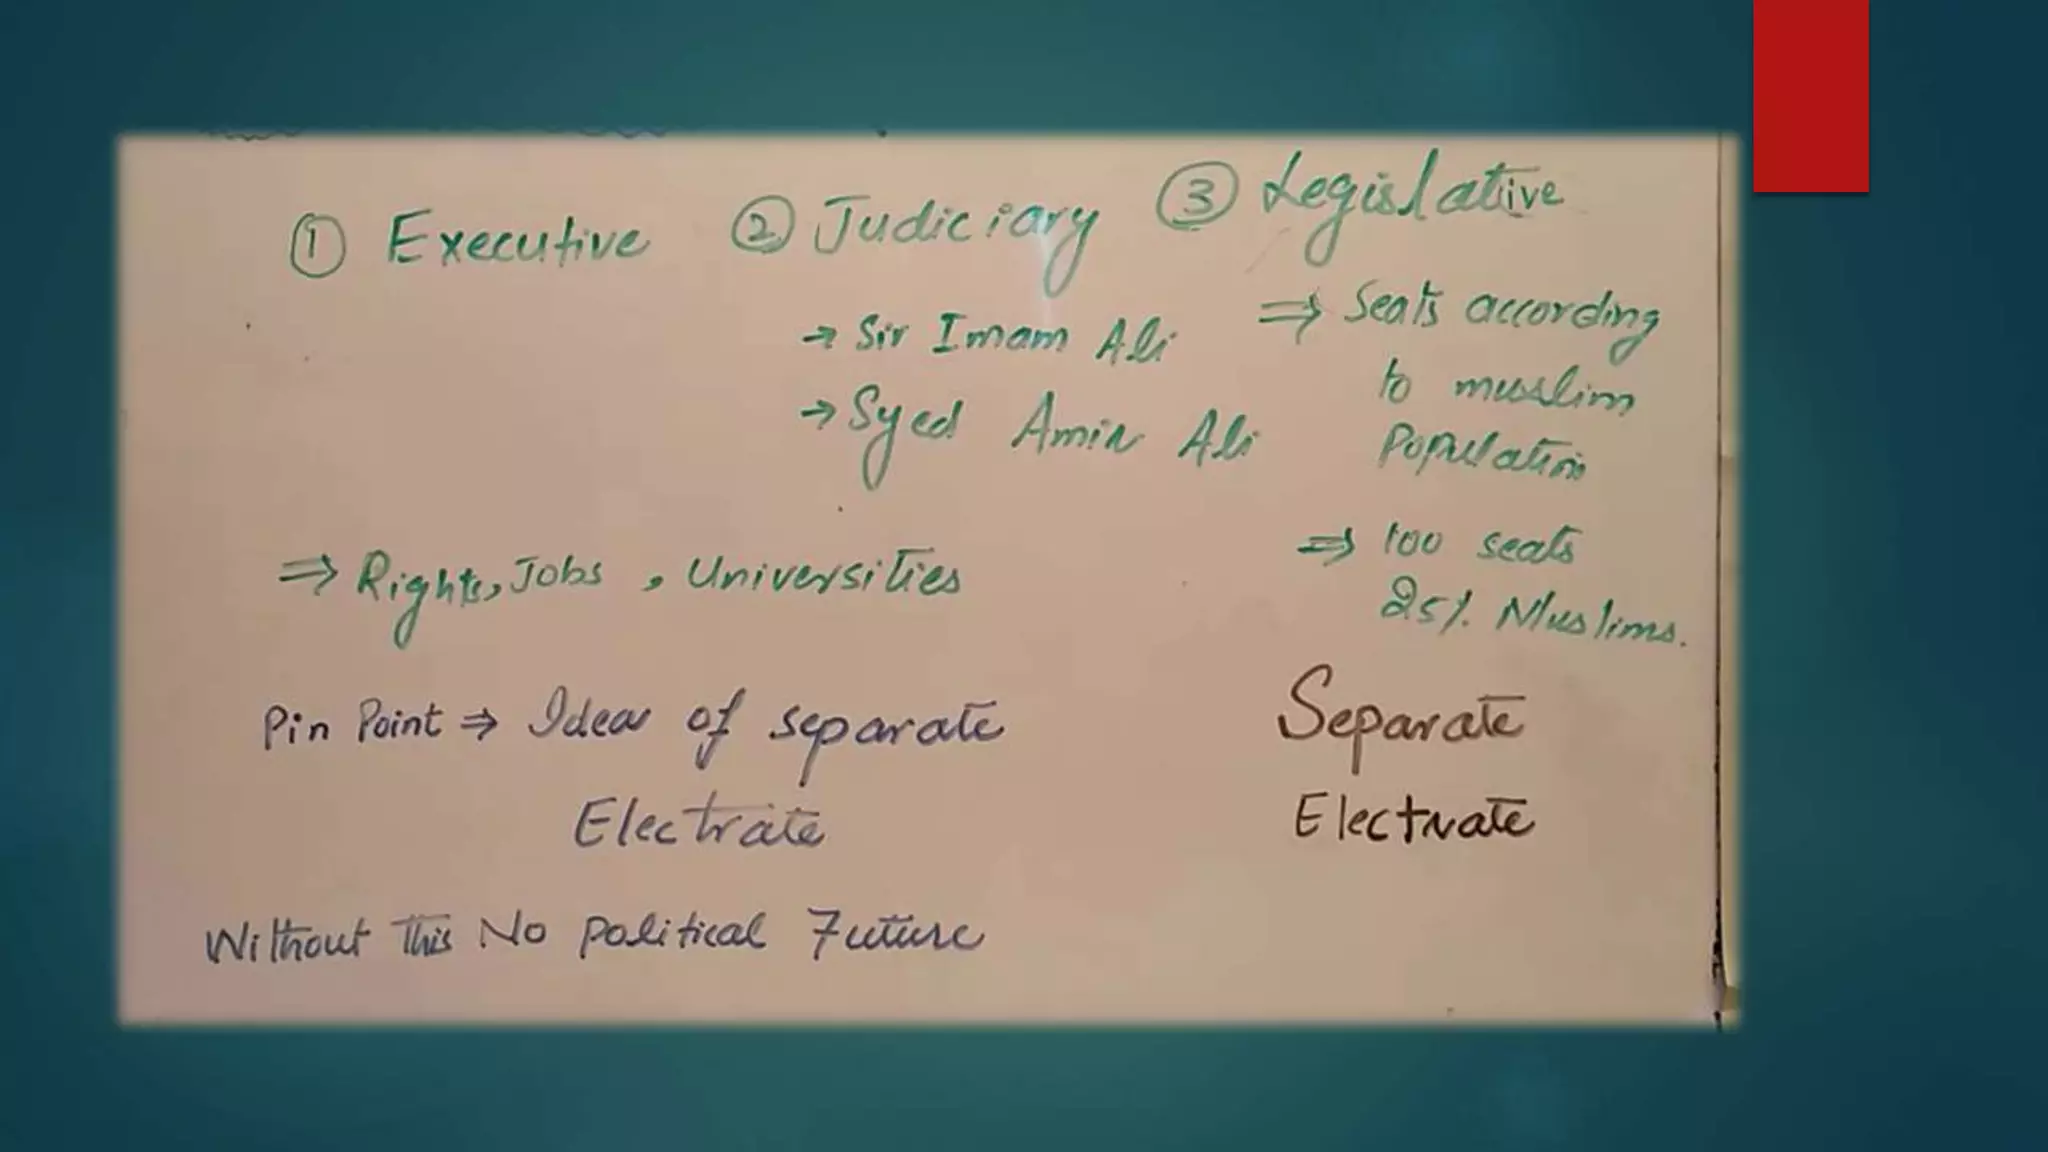 ① Executive ② Judiciary ③ Legislative
→ Sir Imam Ali
→ Syed Amir Ali
⇒ Seats according
to muslim
Population
⇒ 100 seats
25% Muslims.
⇒ Rights, Jobs, Universities
Pin Point ⇒ Idea of separate
Electrate
Separate
Electrate
Without This No Political Future